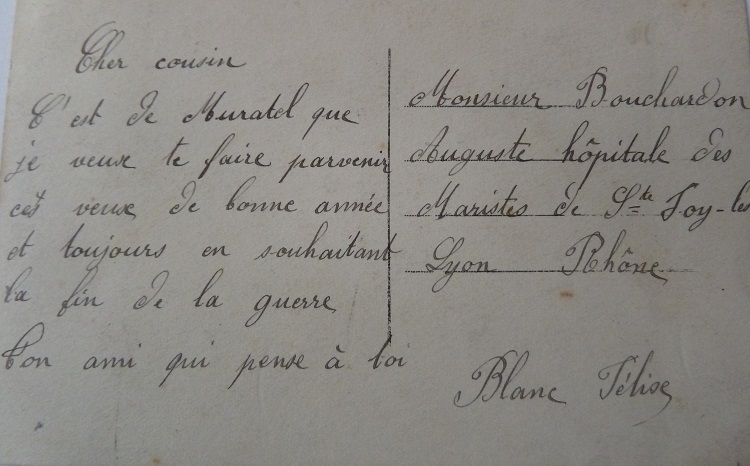 Cher cousin
C'est de Muratel que
je veux te faire parvenir
cet veux de bonne année
et toujours en souhaitant
la fin de la guerre
Ton ami qui pense à toi
Monsieur Bouchardon
Auguste hôpitale des
Maristes de Ste Foy-lès
Lyon Rhône
Blanc Félise